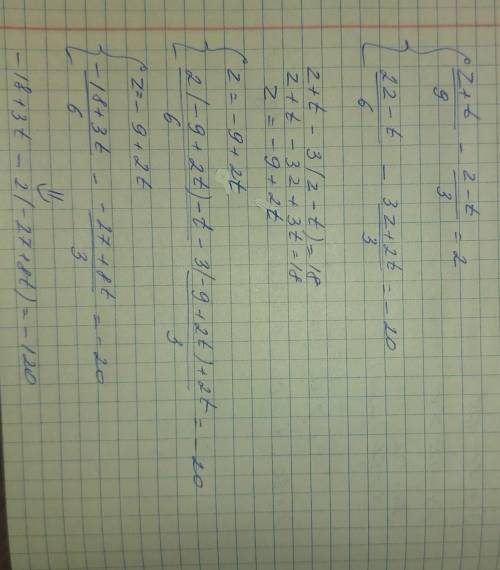 { (z+t)/9 - (z-t)/3 = 2
{ (2z-t)/6 - (3z+2t)/3 = -20
z+t - 3(z-t) = 18
z+t - 3z+3t = 18
z = -9+2t
{ z = -9+2t
{ (2(-9+2t)-t)/6 - (3(-9+2t)+2t)/3 = -20
{ z = -9+2t
{ (-18+3t)/6 - (-27+8t)/3 = -20
⇓
-18+3t - 2(-27+8t) = -120